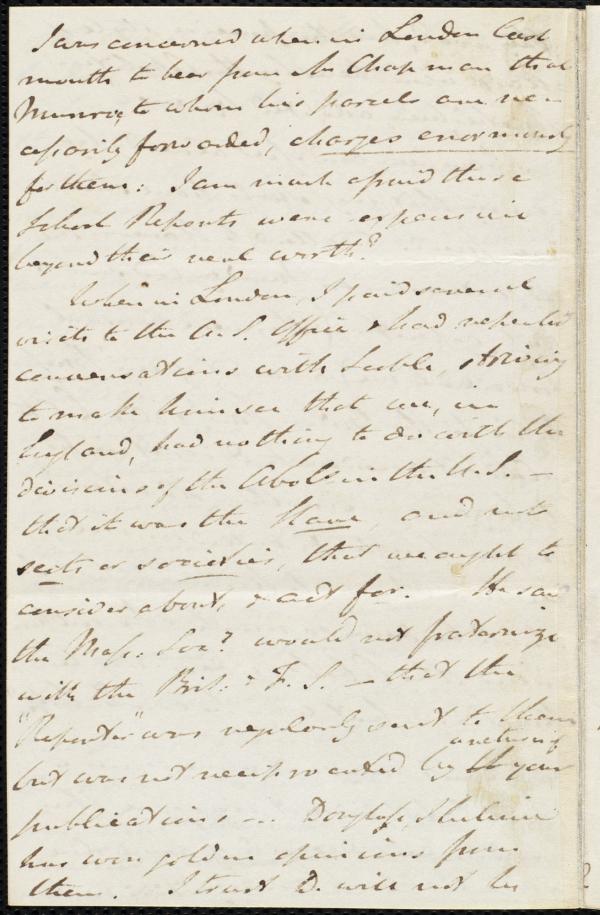 I was concerned when in London last
month to hear from Mr Chapman that
Munroe, to whom his parcels are nec-
essarily forwarded, charges enormously
for them: I am much afraid these
School Reports were expensive
beyond their real worth?
When in London, I paid several
visits to the A. S. Office & had repeated
conversations with Scoble, striving
to make him see that we, in
England, had nothing to do with the
divisions of the Abols in the U.S. —
that it was the Slave, and not
sects or societies, that we ought to
consider about, & act for. He said
the Mass: Soc? would not fraternize
with the Brit: & F. S. — that the
"Reporter" was regularly sent to them
but was not reciprocated by any of your
publications — Douglass, I believe
has won golden opinions from
them. I trust D. will not be